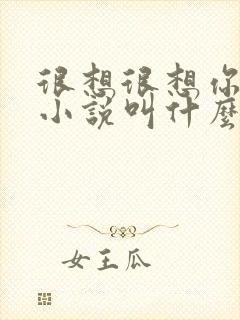 很想很想你
小说叫什麽
女王瓜